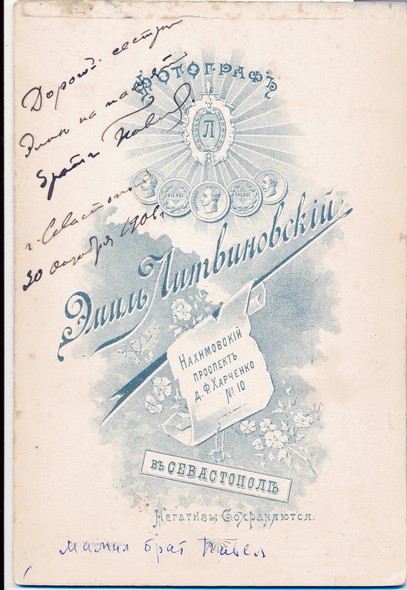 Дорог. сестре
Элли на память
Братъ Павел
г. Севастополь
30 октября 1901 г
Фотографъ
Л
Эмиль Литвиновскій
Нахимовскій
проспектъ
д. Ф. Харченко
№ 10
въ Севастополѣ
Негативы Сохраняются.
мамин брат Павел